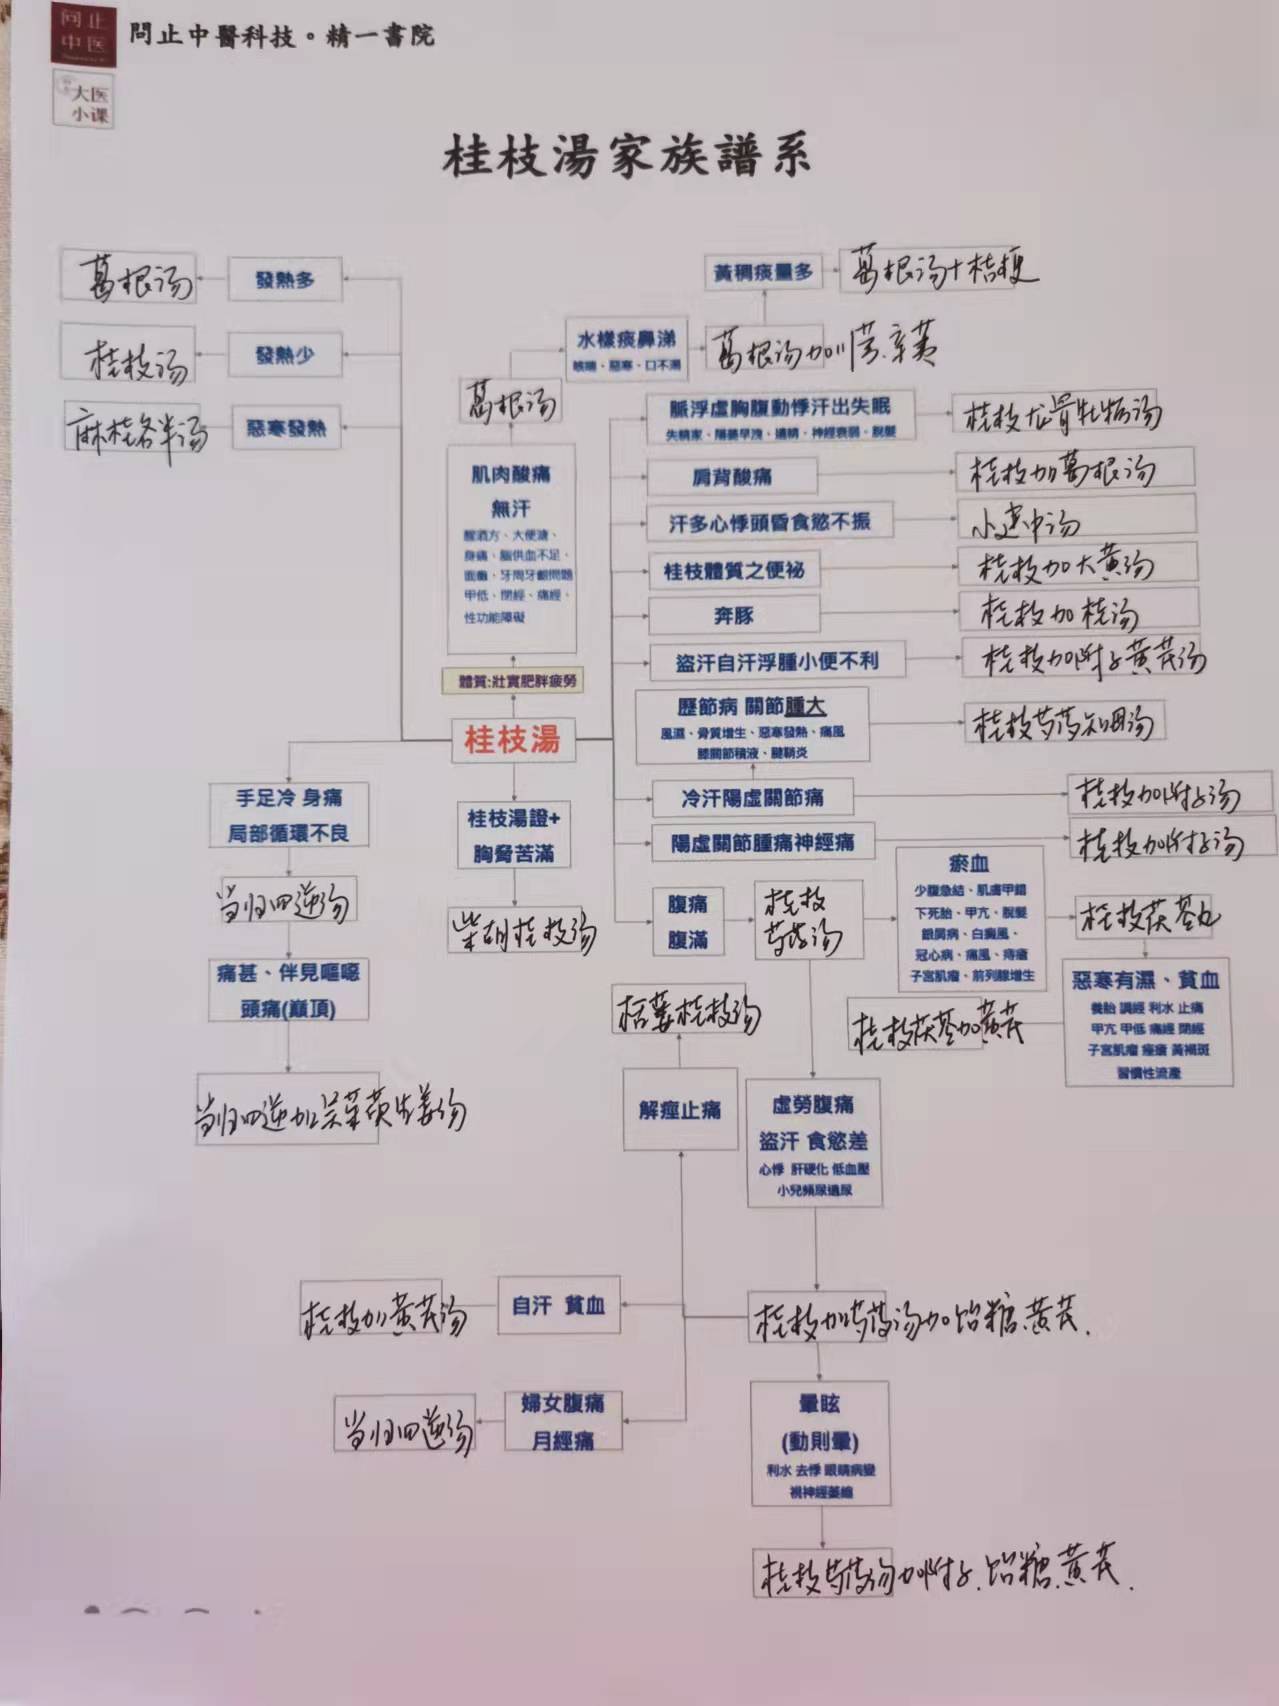 問止
中医
問止中醫科技。精一書院
大医
小课
桂枝湯家族譜系
葛根汤
發熱多
桂枝汤
發熱少
麻桂各半汤
惡寒發熱
黃稠痰量多
葛根汤+桔梗
水樣痰鼻涕
咳喘、惡寒、口不渴
葛根汤加川芎.辛荑
葛根汤
肌肉酸痛
無汗
醒酒方、大便溏、
身痛、腦供血不足、
面癱、牙周牙齦問題
甲低、閉經、痛經、
性功能障礙
體質:壯實肥胖疲勞
桂枝湯
脈浮虛胸腹動悸汗出失眠
失精家、陽萎早洩、遺精、神經衰弱、脫髮
桂枝龙骨牡蛎汤
肩背酸痛
桂枝加葛根汤
汗多心悸頭昏食慾不振
小建中汤
桂枝體質之便祕
桂枝加大黄汤
奔豚
桂枝加桂汤
盜汗自汗浮腫小便不利
桂枝加附子黄芪汤
歷節病 關節腫大
風濕、骨質增生、惡寒發熱、痛風
膝關節積液、腱鞘炎
桂枝芍药知母汤
冷汗陽虛關節痛
桂枝加附子汤
陽虛關節腫痛神經痛
桂枝加附子汤
手足冷 身痛
局部循環不良
当归四逆汤
痛甚、伴見嘔噁
頭痛(巔頂)
当归四逆加吴茱萸生姜汤
桂枝湯證+
胸脅苦滿
柴胡桂枝汤
腹痛
腹滿
桂枝
芍药汤
瘀血
少腹急結、肌膚甲錯
下死胎、甲亢、脫髮
眼房病、白癜風、
冠心病、痛風、痔瘡
子宮肌瘤、前列腺增生
桂枝茯苓丸
惡寒有濕、貧血
養胎 調經 利水 止痛
甲亢 甲低 痛經 閉經
子宮肌瘤 痤瘡 黃褐斑
習慣性流產
桂枝茯苓加黄芪
栝蒌桂枝汤
解痙止痛
虛勞腹痛
盜汗 食慾差
心悸 肝硬化 低血壓
小兒頻尿遺尿
桂枝加黄芪汤
自汗 貧血
桂枝加芍药汤加饴糖.黄芪.
当归四逆汤
婦女腹痛
月經痛
暈眩
(動則暈)
利水 去悸 眼睛病變
視神經萎縮
桂枝芍药汤加附子.饴糖.黄芪.